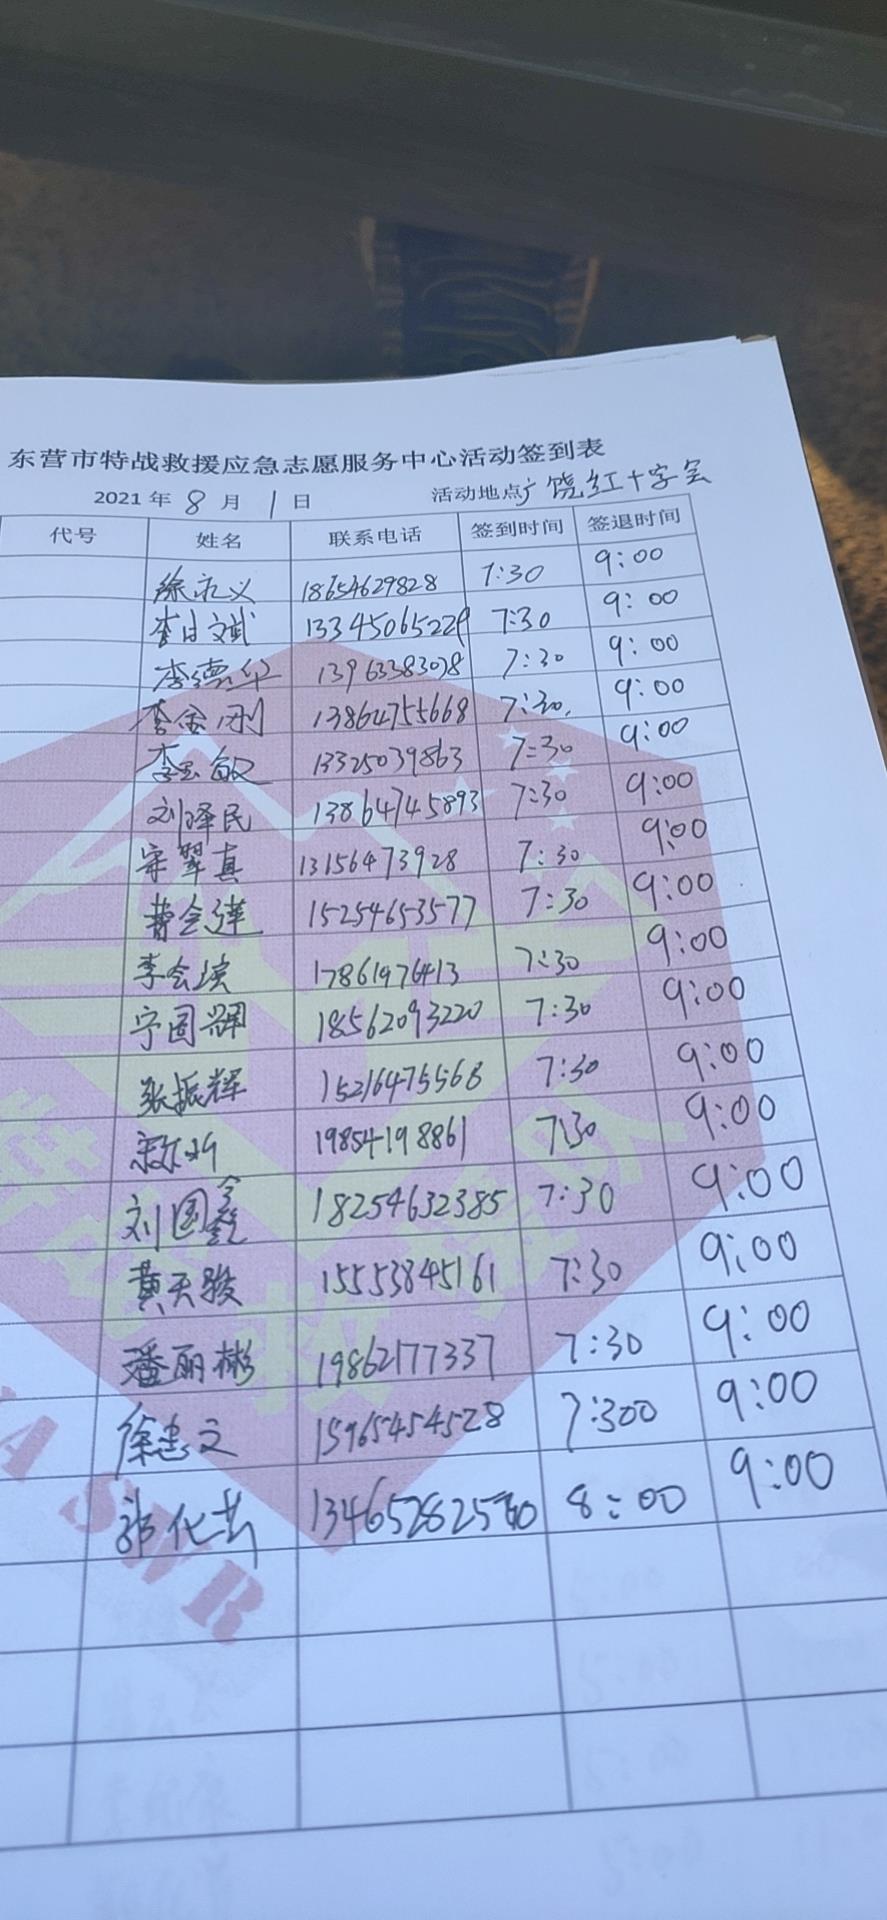 东营市特战救援应急志愿服务中心活动签到表
2021 年 8 月 1 日 活动地点 广饶红十字会
代号 姓名 联系电话 签到时间 签退时间
徐永义 18654629828 7:30 9:00
李日文斌 13345065229 7:30 9:00
李德华 13963383078 7:30 9:00
李金刚 13864755668 7:30. 9:00
李玉敏 13325039863 7:30 9:00
刘泽民 13864745893 7:30 9:00
宋翠真 13156473928 7:30 9:00
曹会莲 15254653577 7:30 9:00
李会滨 17861976413 7:30 9:00
宁国辉 18562093220 7:30 9:00
张振辉 15216475568 7:30 9:00
19854198861 7:30 9:00
刘国鑫 18254632385 7:30 9:00
黄天骏 15553845161 7:30 9:00
潘丽彬 19862177337 7:30 9:00
徐忠文 15965454528 7:300 9:00
郭化芸 8:00 9:00
特战救援队
SWR